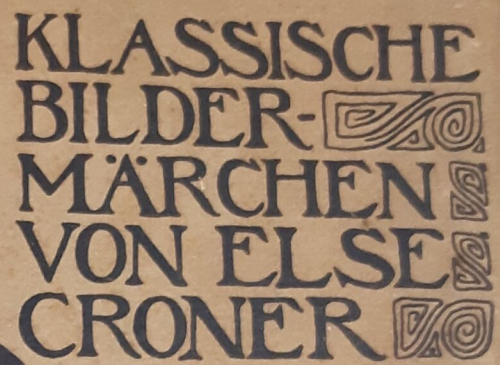 KLASSISCHE
BILDER-
MÄRCHEN
VON ELSE
CRONER